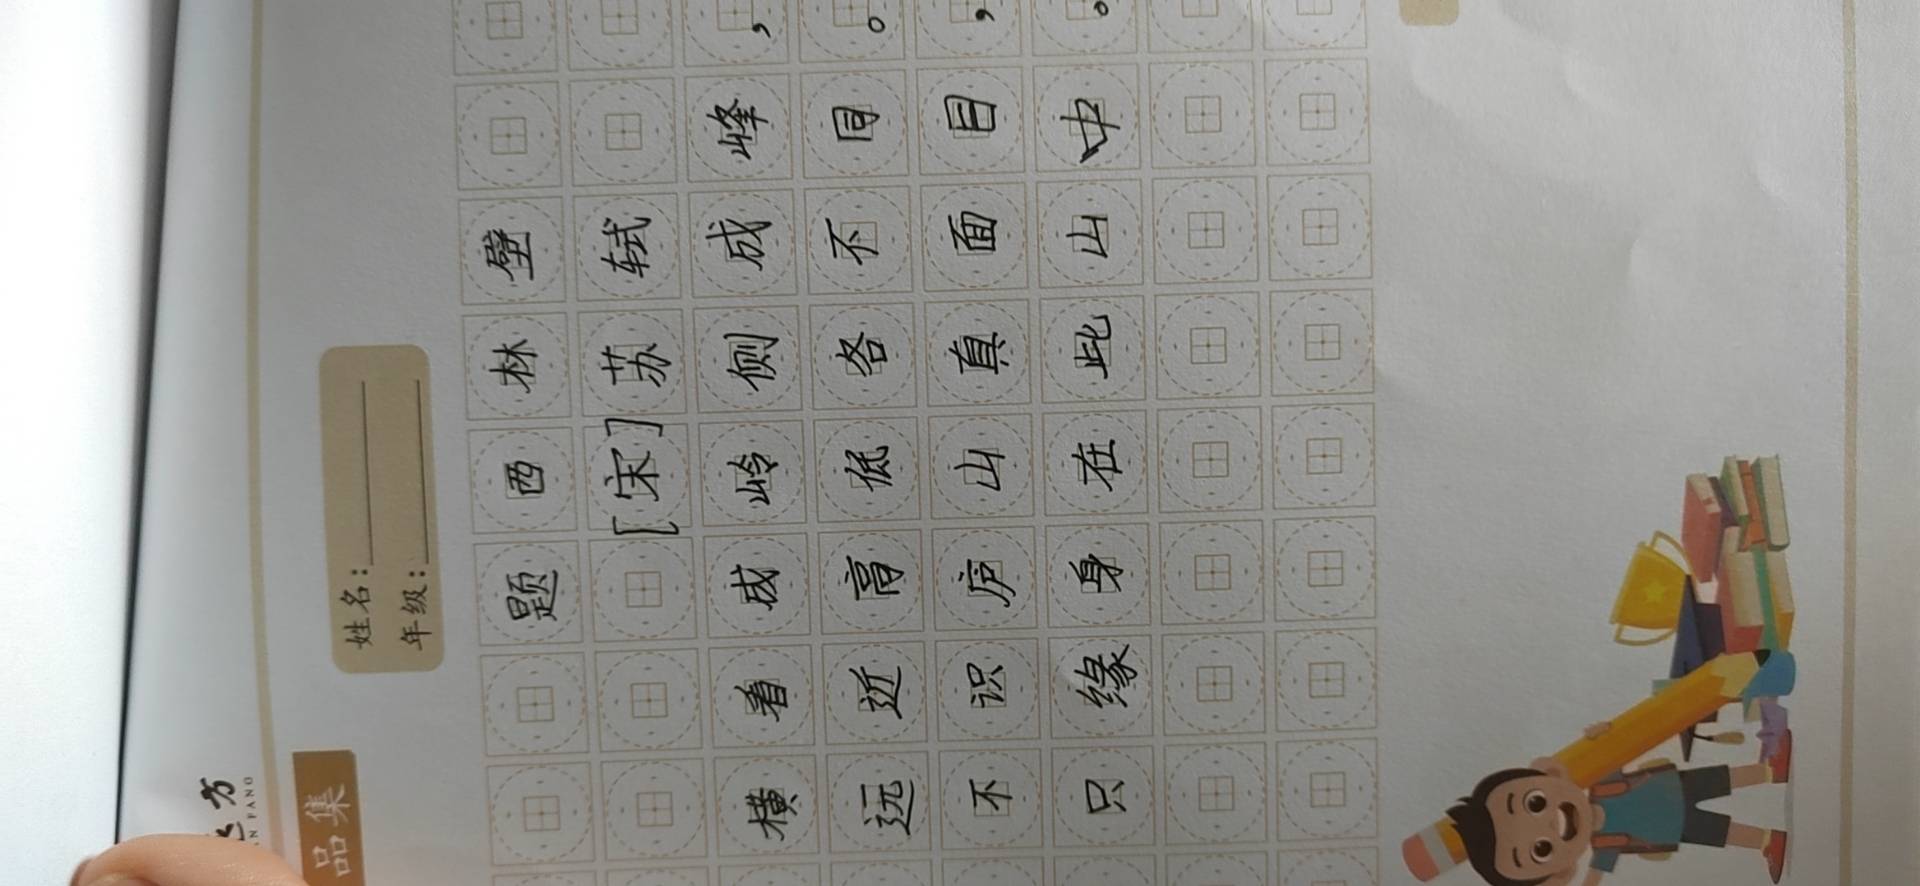 方
N FANG
品集
姓名：
年级：
题西林壁
[宋]苏轼
横看成岭侧成峰，
远近高低各不同。
不识庐山真面目，
只缘身在此山中。